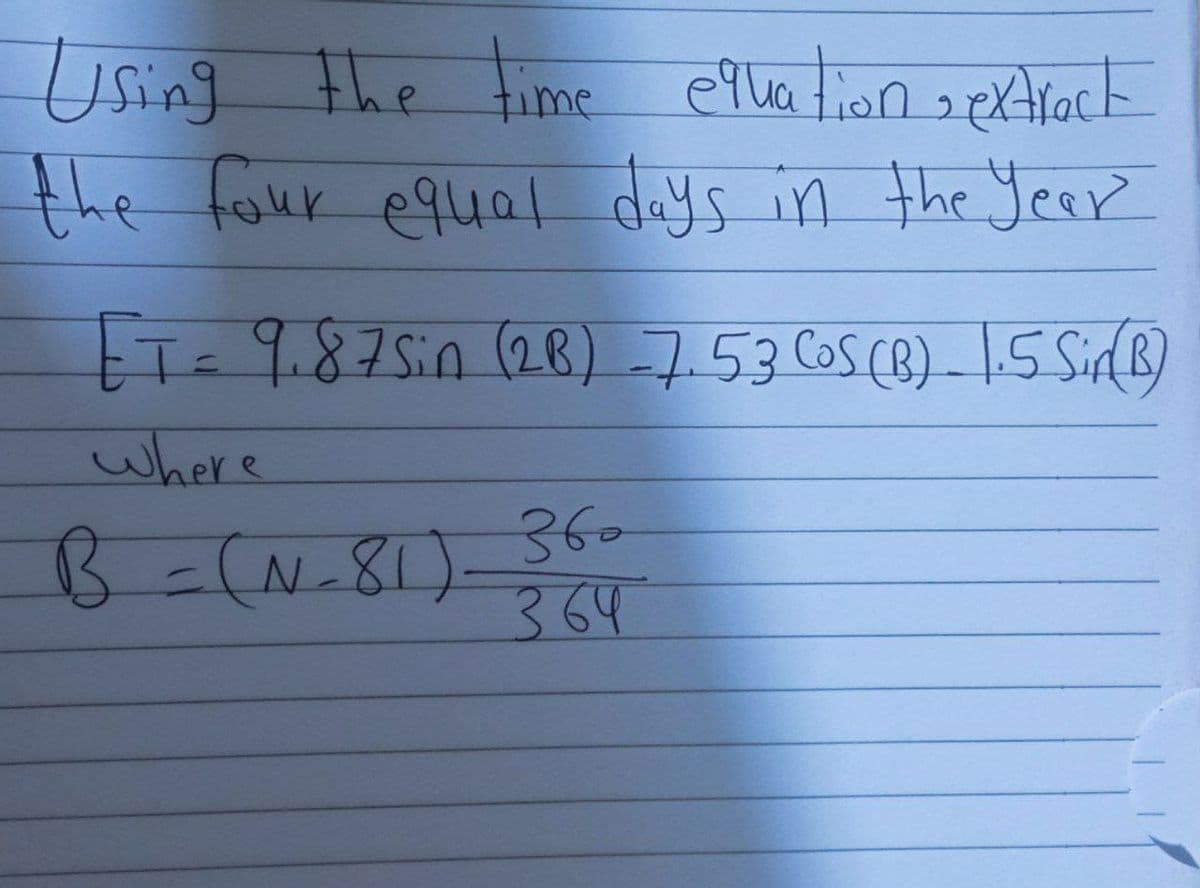 Using the time equation, extract
the four equal days in the Year
ET = 9.87 Sin (2B) - 7.53 Cos (B) - 1.5 Sin(B)
where
B = (N - 81) 360/364